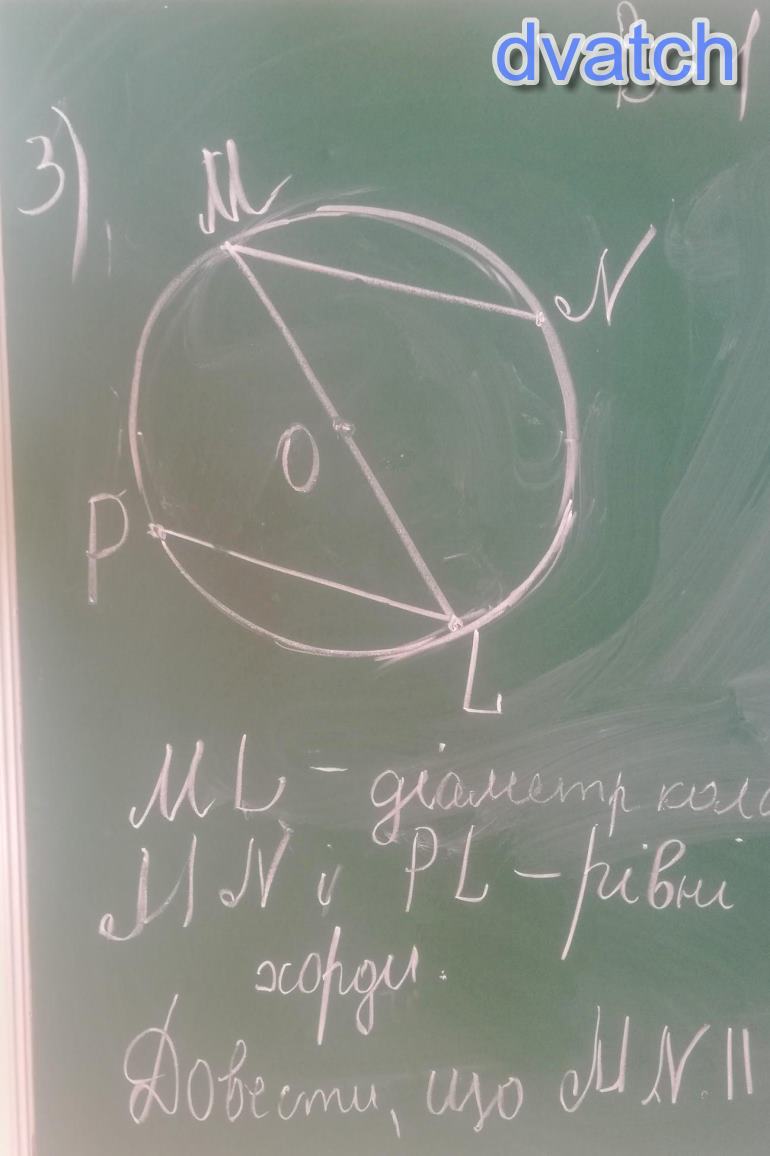 dvatch
3)
M
N
O
P
L
ML - діаметр кола
MN і PL - рівні
хорди.
Довести, що MN ||